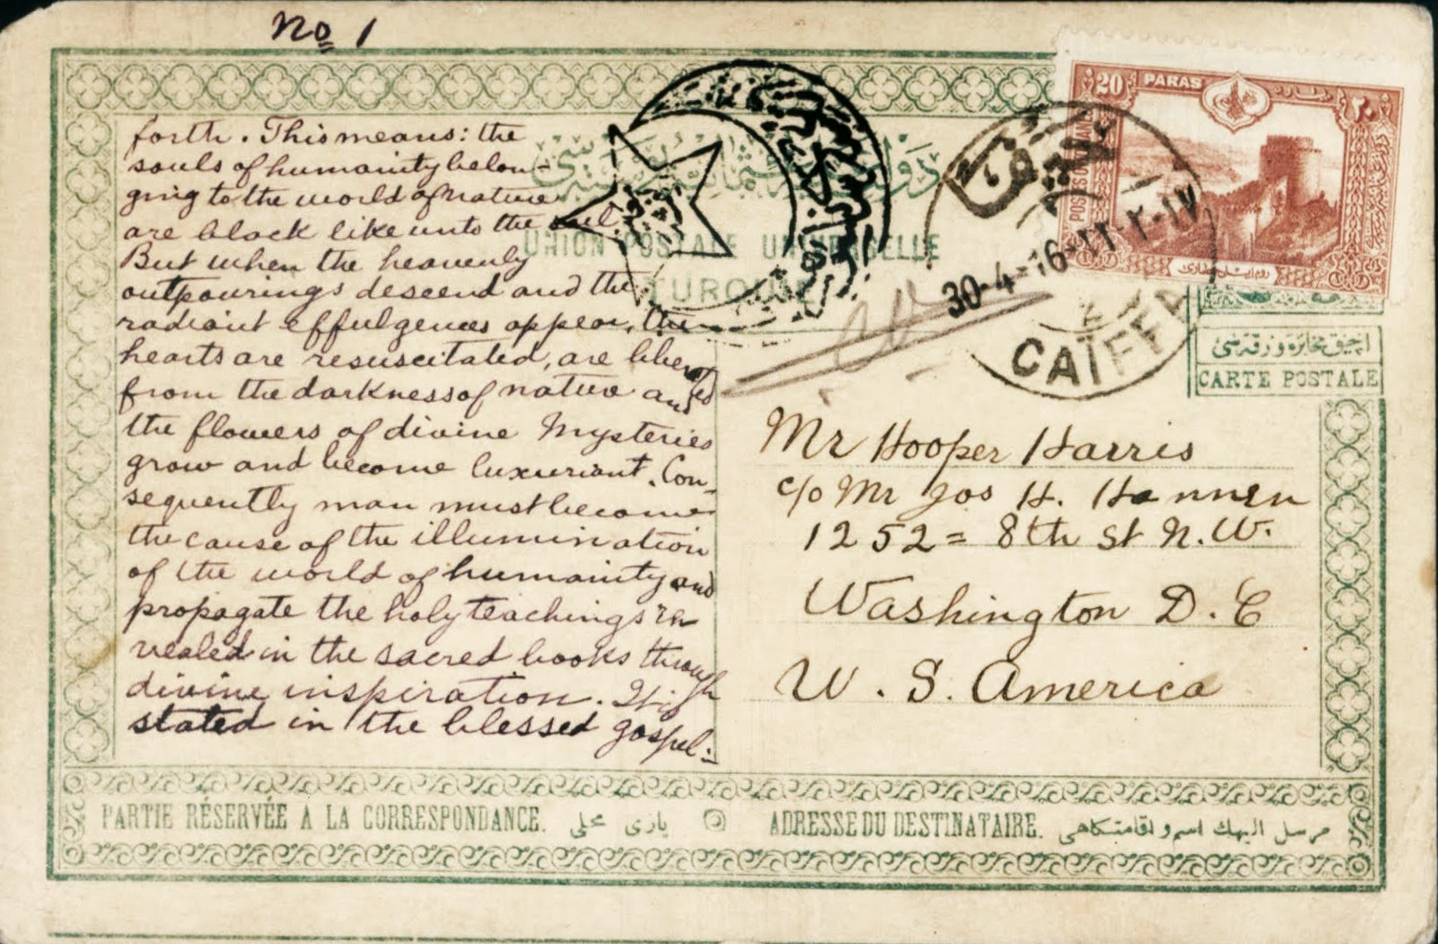 No 1
forth. This means: the
souls of humanity belon-
ging to the world of nature
are black like unto the soil.
But when the heavenly
outpourings descend and the
radiant effulgences appear, the
hearts are resuscitated, are liberated
from the darkness of nature and
the flowers of divine Mysteries
grow and become luxuriant. Con-
sequently man must become
the cause of the illumination
of the world of humanity and
propagate the holy teachings re
vealed in the sacred books through
divine inspiration. It is
stated in the blessed gospel:
UNION POSTALE UNIVERSELLE
TURQUIE
20 PARAS ٢٠
POSTES OTTOMANES
روم ایلی حصاری
30-4-16
CAÏFFA
2
آچیق مخابره ورقه سی
CARTE POSTALE
Mr Hooper Harris
c/o Mr Jos H. Hannen
1252= 8th St N.W.
Washington D.C
U. S. America
PARTIE RÉSERVÉE À LA CORRESPONDANCE.
ADRESSE DU DESTINATAIRE. مرسل الیهك اسم و اقامتكاهی